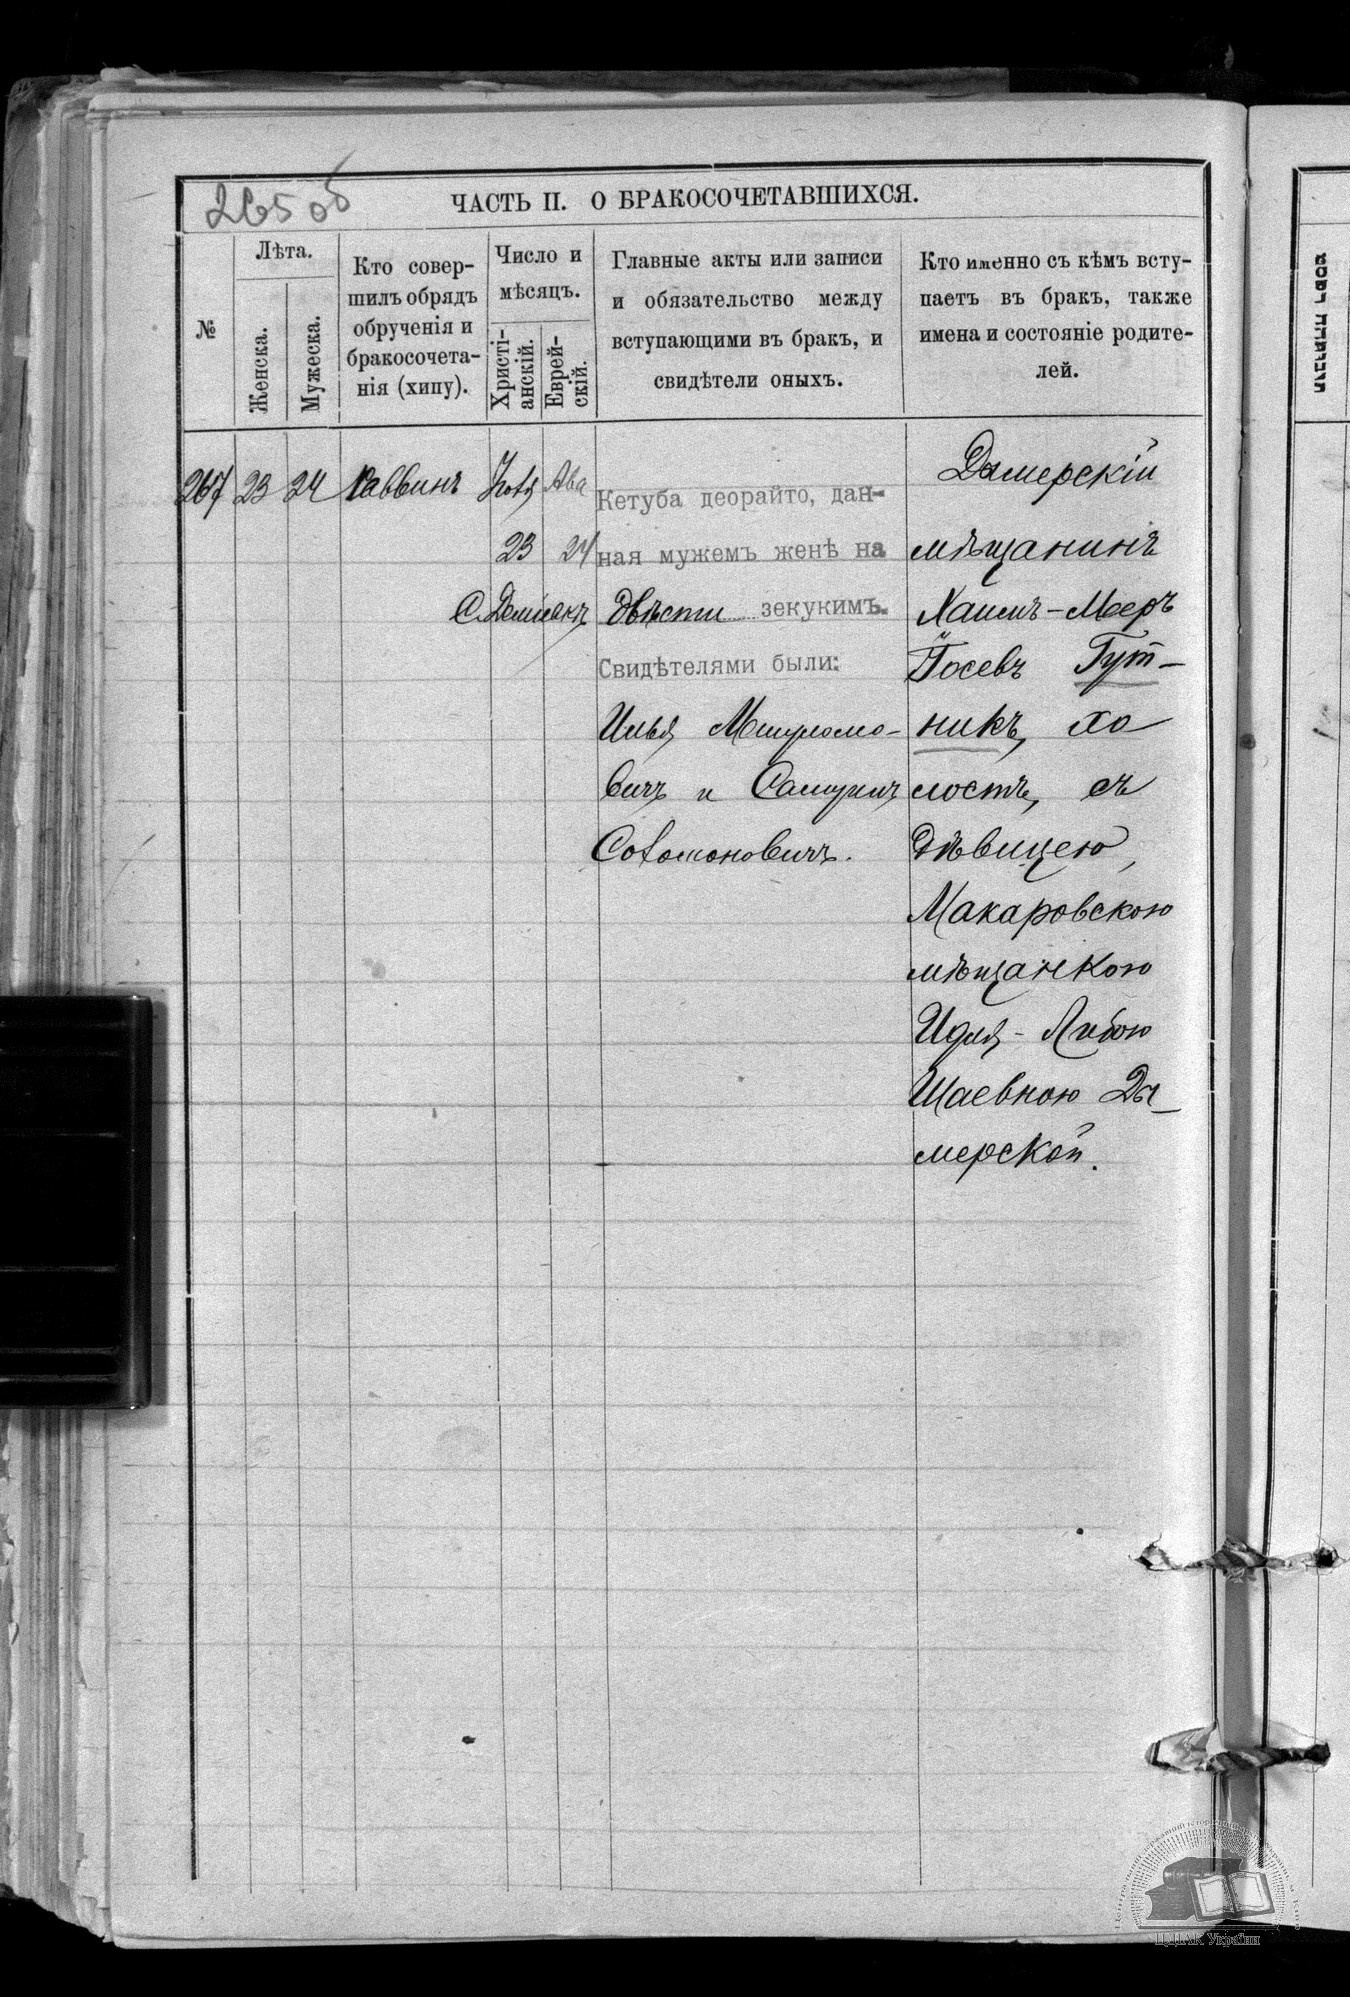 265 об
ЧАСТЬ II. О БРАКОСОЧЕТАВШИХСЯ.
№
Лѣта.
Женска.
Мужеска.
Кто совер-
шилъ обрядъ
обрученія и
бракосочета-
нія (хипу).
Число и
мѣсяцъ.
Христі-
анскій.
Еврей-
скій.
Главные акты или записи
и обязательство между
вступающими въ бракъ, и
свидѣтели оныхъ.
Кто именно съ кѣмъ всту-
паетъ въ бракъ, также
имена и состояніе родите-
лей.
267 23 24 Раввинъ Іюля Ава
23 24
Кетуба деорайто, дан-
ная мужемъ женѣ на
двѣсти зекукимъ.
Свидѣтелями были:
Илья
-
вичъ и Самуилъ
Соломоновичъ.
Дымерскій
мѣщанинъ
Хаимъ-Мееръ
Іосевъ Гут-
никъ, хо
лостъ, съ
дѣвицею,
Макаровскою
мѣщанкою
Идля-Либою
Шаевною Ды-
мерской.
ЦДІАК України